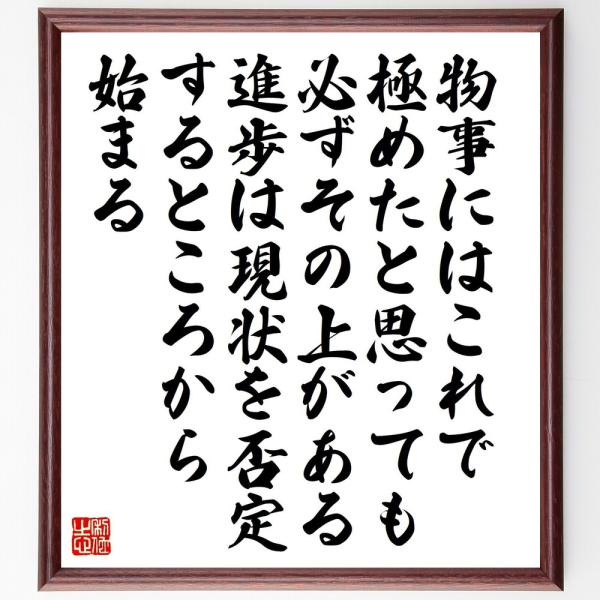 物事にはこれで
極めたと思っても
必ずその上がある
進歩は現状を否定
するところから
始まる